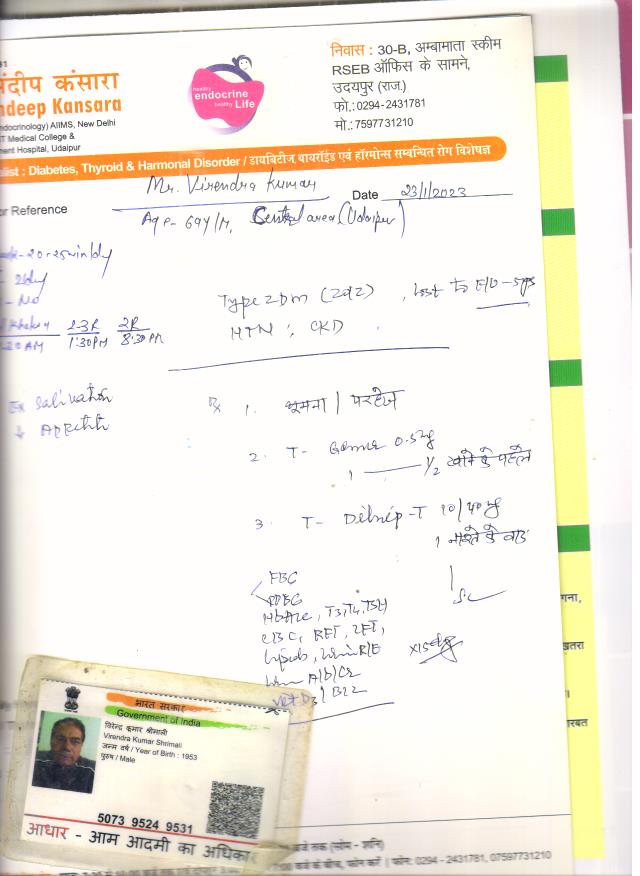 निवास : 30-B, अम्बामाता स्कीम
RSEB ऑफिस के सामने,
उदयपुर (राज.)
फो.:0294-2431781
मो.:7597731210
संदीप कंसारा
ndeep Kansara
ndocrinology) AIIMS, New Delhi
T Medical College &
ent Hospital, Udaipur
healthy
endocrine
healthy Life
list : Diabetes, Thyroid & Harmonal Disorder / डायबिटीज थायरॉईड एवं हॉरमोन्स सम्बन्धित रोग विशेषज्ञ
Mr. Virendra Kumar
or Reference
Date 23/1/2023
Age- 69y/M, Central area (Udaipur)
- 20-25min/dy
- No
2-3R 2R
20 AM 1:30PM 8:30 PM
Type 2 DM ( , lost to F/U - 5yrs
HTN , CKD
Salivation
↓ Appetite
Rx 1. घूमना / परहेज
2. T- 0.5mg
1 1/2 खाने के पहले
3. T- Dilnip-T 10/40mg
1 नाश्ते के बाद
FBG
PPBG
HbA1c, T3, T4, TSH
CBC, RFT, LFT,
Lipids, Urine R/E
Urine A/b/Cr
Vit D3 / B12
गना,
खतरा
रबत
भारत सरकार
Government of India
विरेन्द्र कुमार श्रीमाली
Virendra Kumar Shrimali
जन्म वर्ष / Year of Birth : 1953
पुरुष / Male
5073 9524 9531
आधार - आम आदमी का अधिकार
बजे तक (सोम - शनि)
7:00 बजे के बीच, फोन करें | फोन: 0294 - 2431781, 07597731210